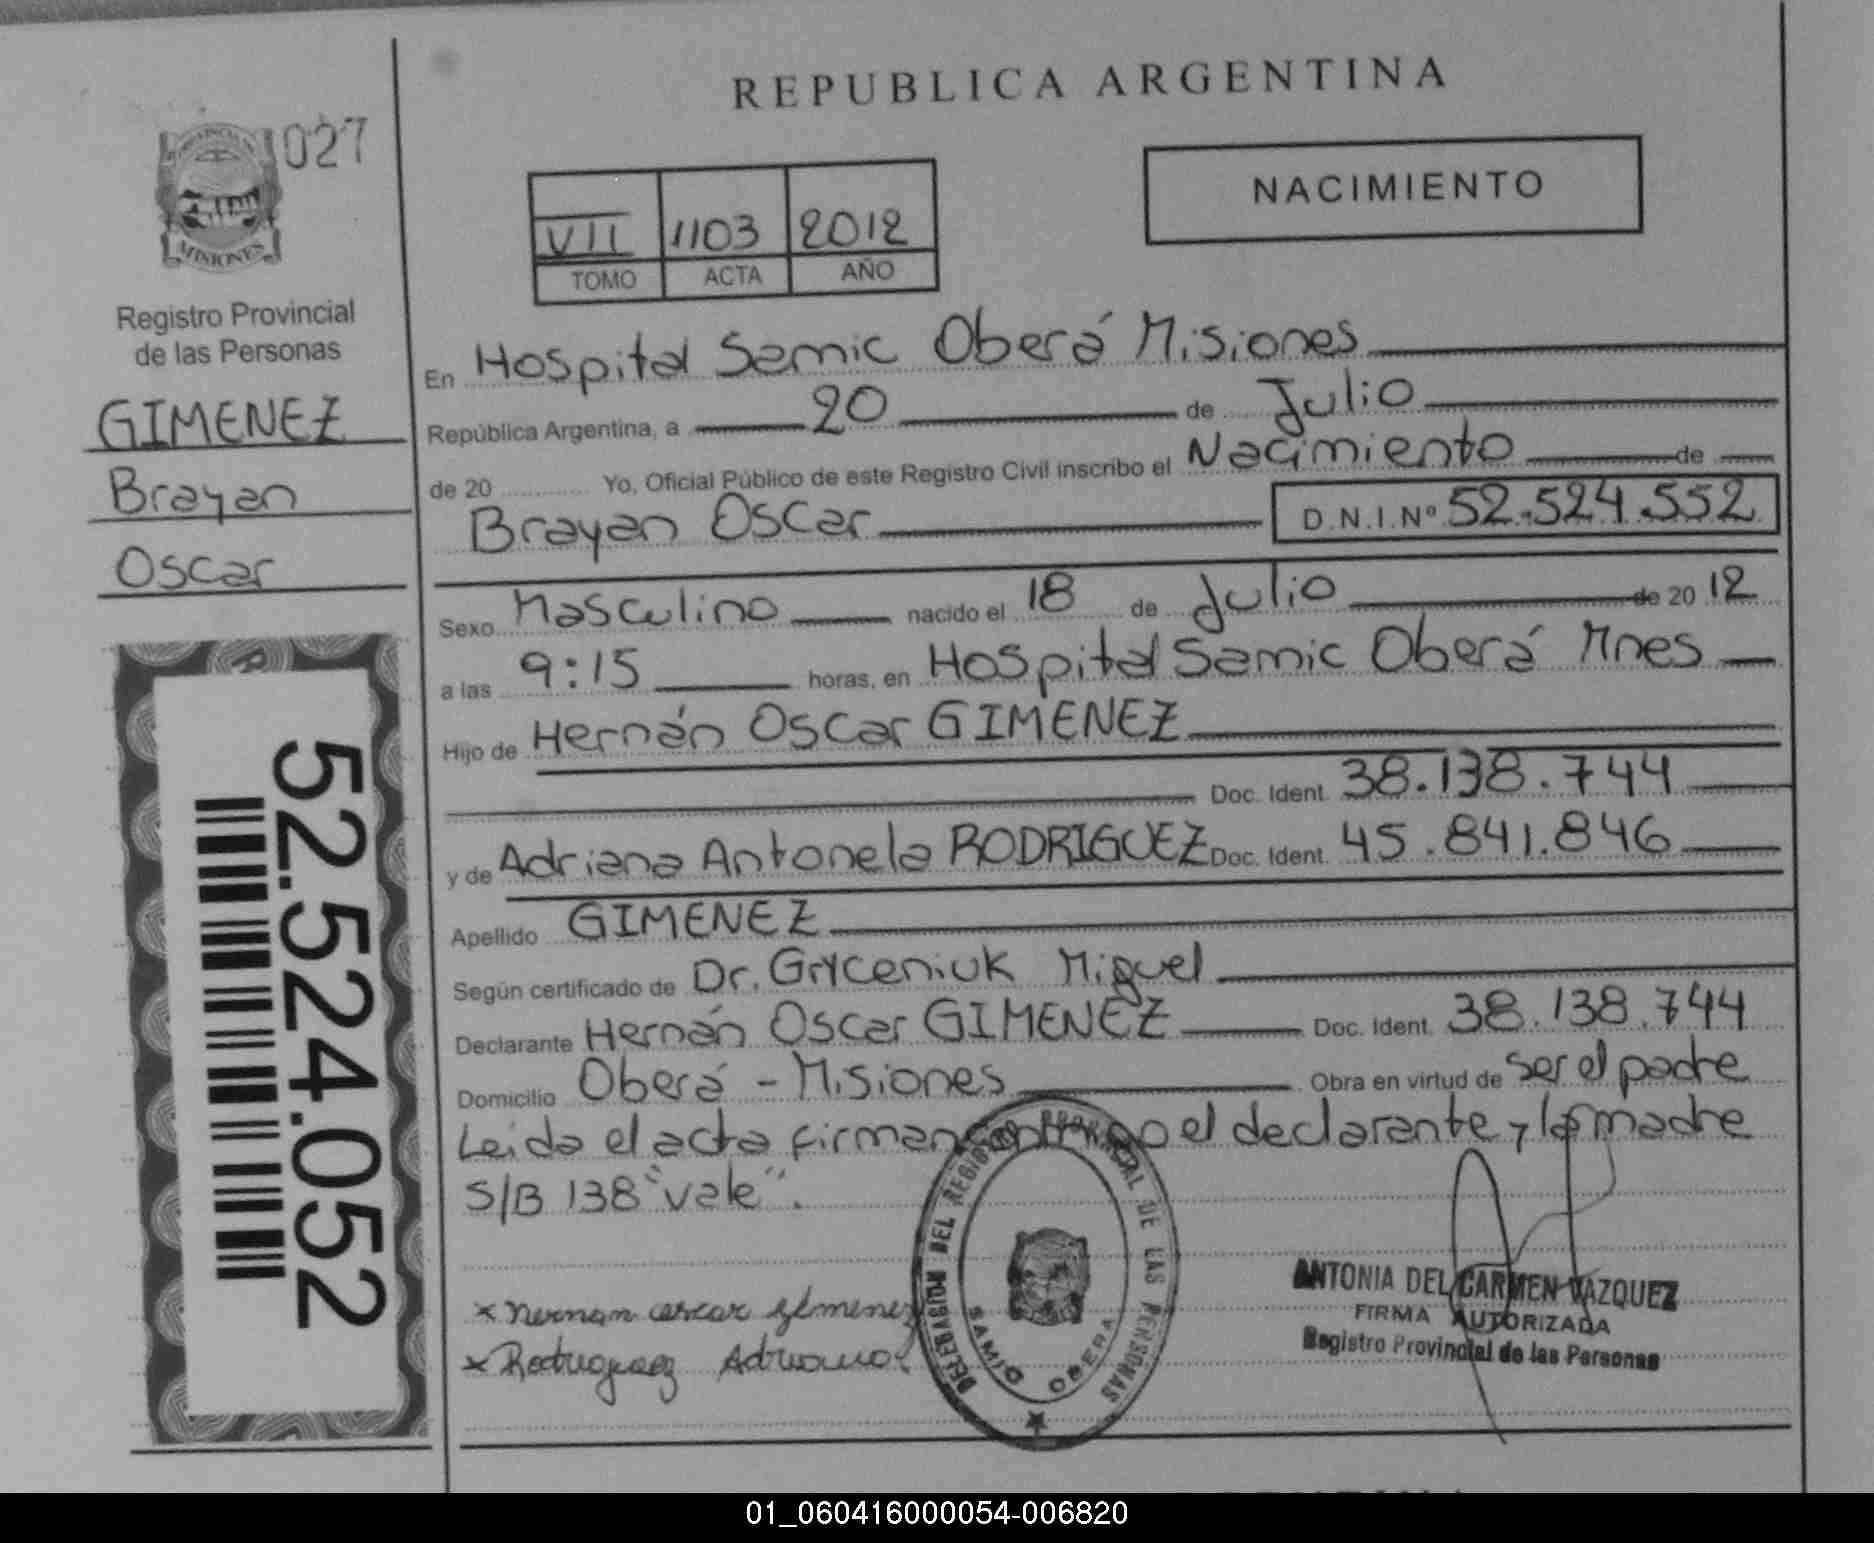 REPUBLICA ARGENTINA
027
PROVINCIA DE
MISIONES
NACIMIENTO
VII 1103 2012
TOMO ACTA AÑO
Registro Provincial
de las Personas
GIMENEZ
Brayan
Oscar
52.524.052
En Hospital Samic Oberá Misiones
República Argentina, a 20 de Julio
de 20 Yo, Oficial Público de este Registro Civil inscribo el Nacimiento de
Brayan Oscar D.N.I.Nº 52.524.552
Sexo Masculino nacido el 18 de Julio de 20 12
a las 9:15 horas, en Hospital Samic Oberá Mnes
Hijo de Hernán Oscar GIMENEZ
Doc. Ident. 38.138.744
y de Adriana Antonela RODRIGUEZ Doc. Ident. 45.841.846
Apellido GIMENEZ
Según certificado de Dr. Gryceniuk Miguel
Declarante Hernán Oscar GIMENEZ Doc. Ident. 38.138.744
Domicilio Oberá - Misiones Obra en virtud de ser el padre
Leida el acta firman conmigo el declarante y la madre
S/B 138 "vale".
DELEGACION DEL REGISTRO PROVINCIAL DE LAS PERSONAS
SAMIC OBERA
ANTONIA DEL CARMEN VAZQUEZ
FIRMA AUTORIZADA
Registro Provincial de las Personas
x Hernan oscar gimenez
x Rodriguez Adriana
01_060416000054-006820